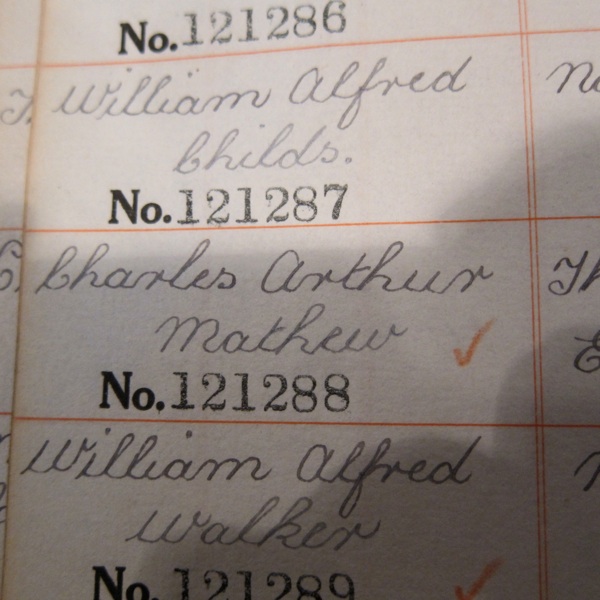 No. 121286
William Alfred
Childs.
No. 121287
Charles Arthur
Mathew
No. 121288
William Alfred
Walker
No. 121289